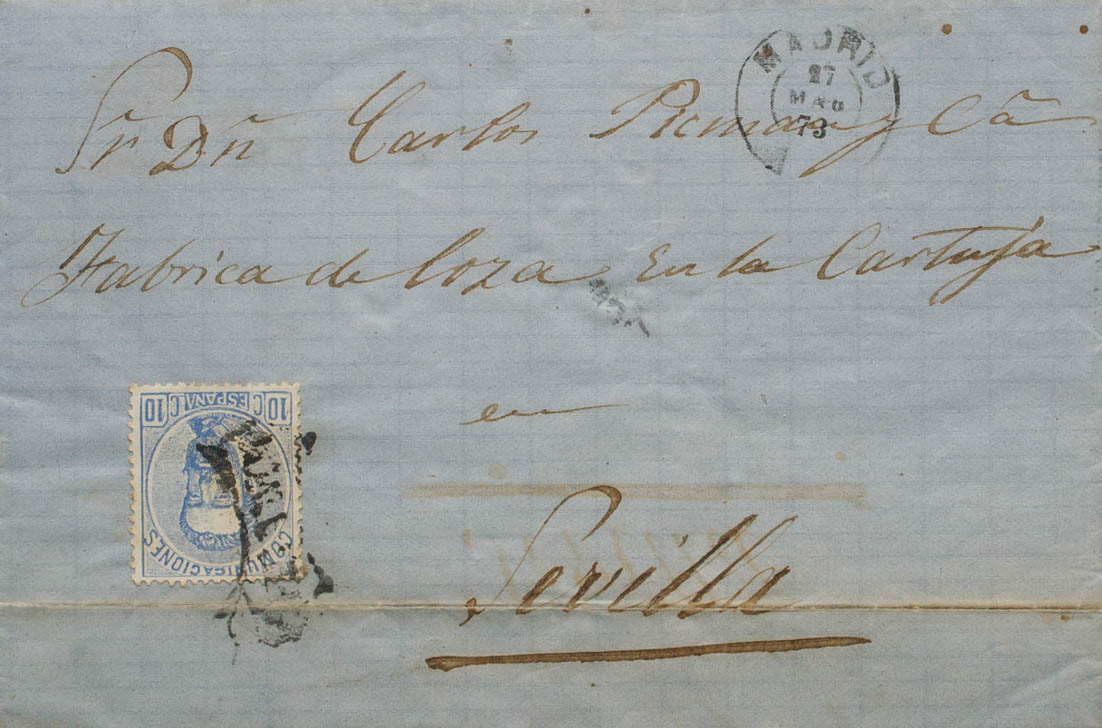 MADRID
27
MAR
73
Sr. Dn Carlos Picman y Ca
Fabrica de loza en la Cartuja
en
Sevilla
10 C ESPAÑA C 10
COMUNICACIONES